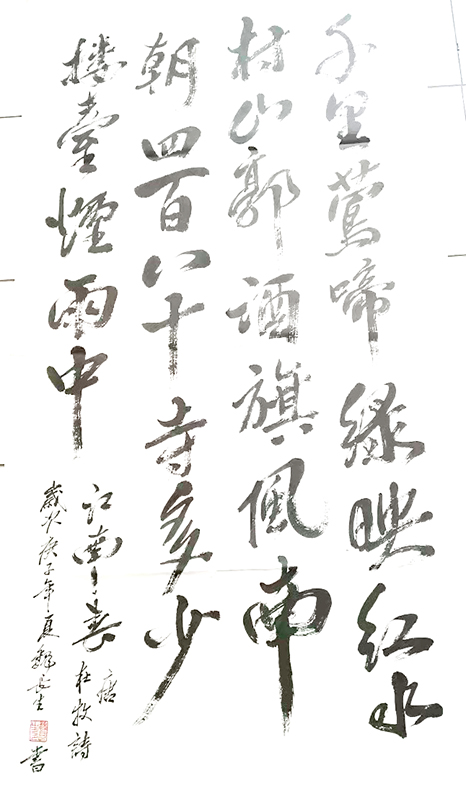 千里莺啼绿映红水
村山郭酒旗風南
朝四百八十寺多少
楼臺煙雨中
江南春 唐 杜牧詩
歲次庚子年夏 長生 書